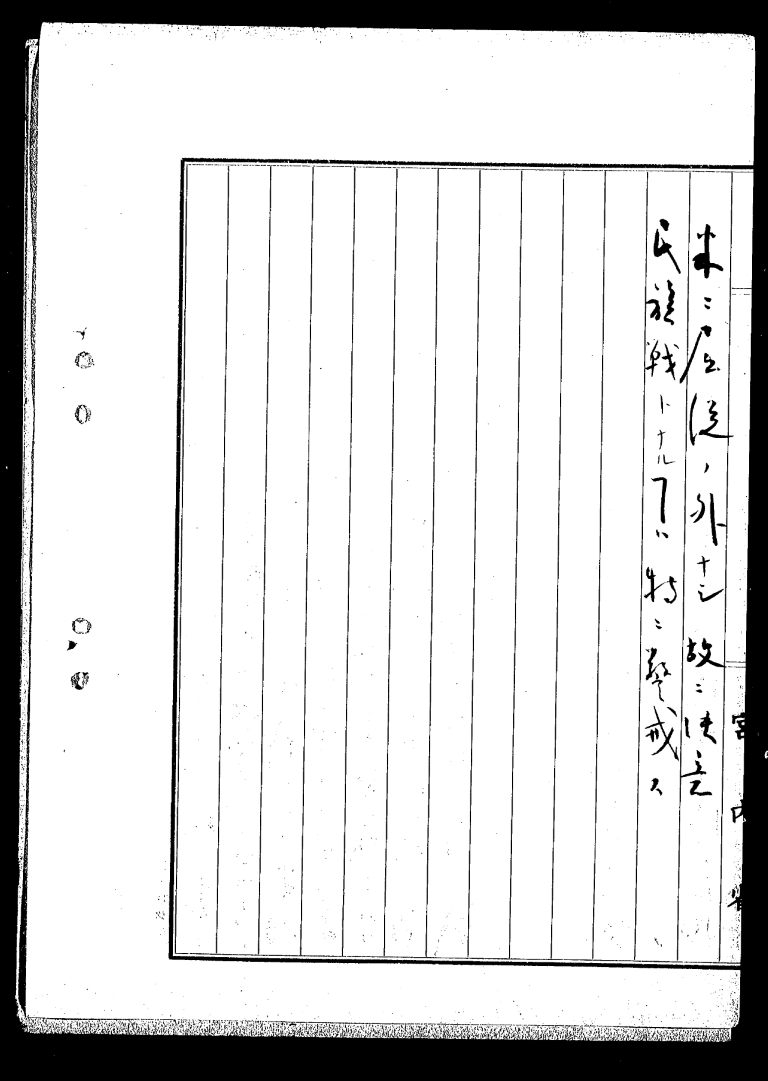 宮内省
米ニ屈従ノ外ナシ故ニ決意
民族戦トナルヿハ特ニ警戒ス